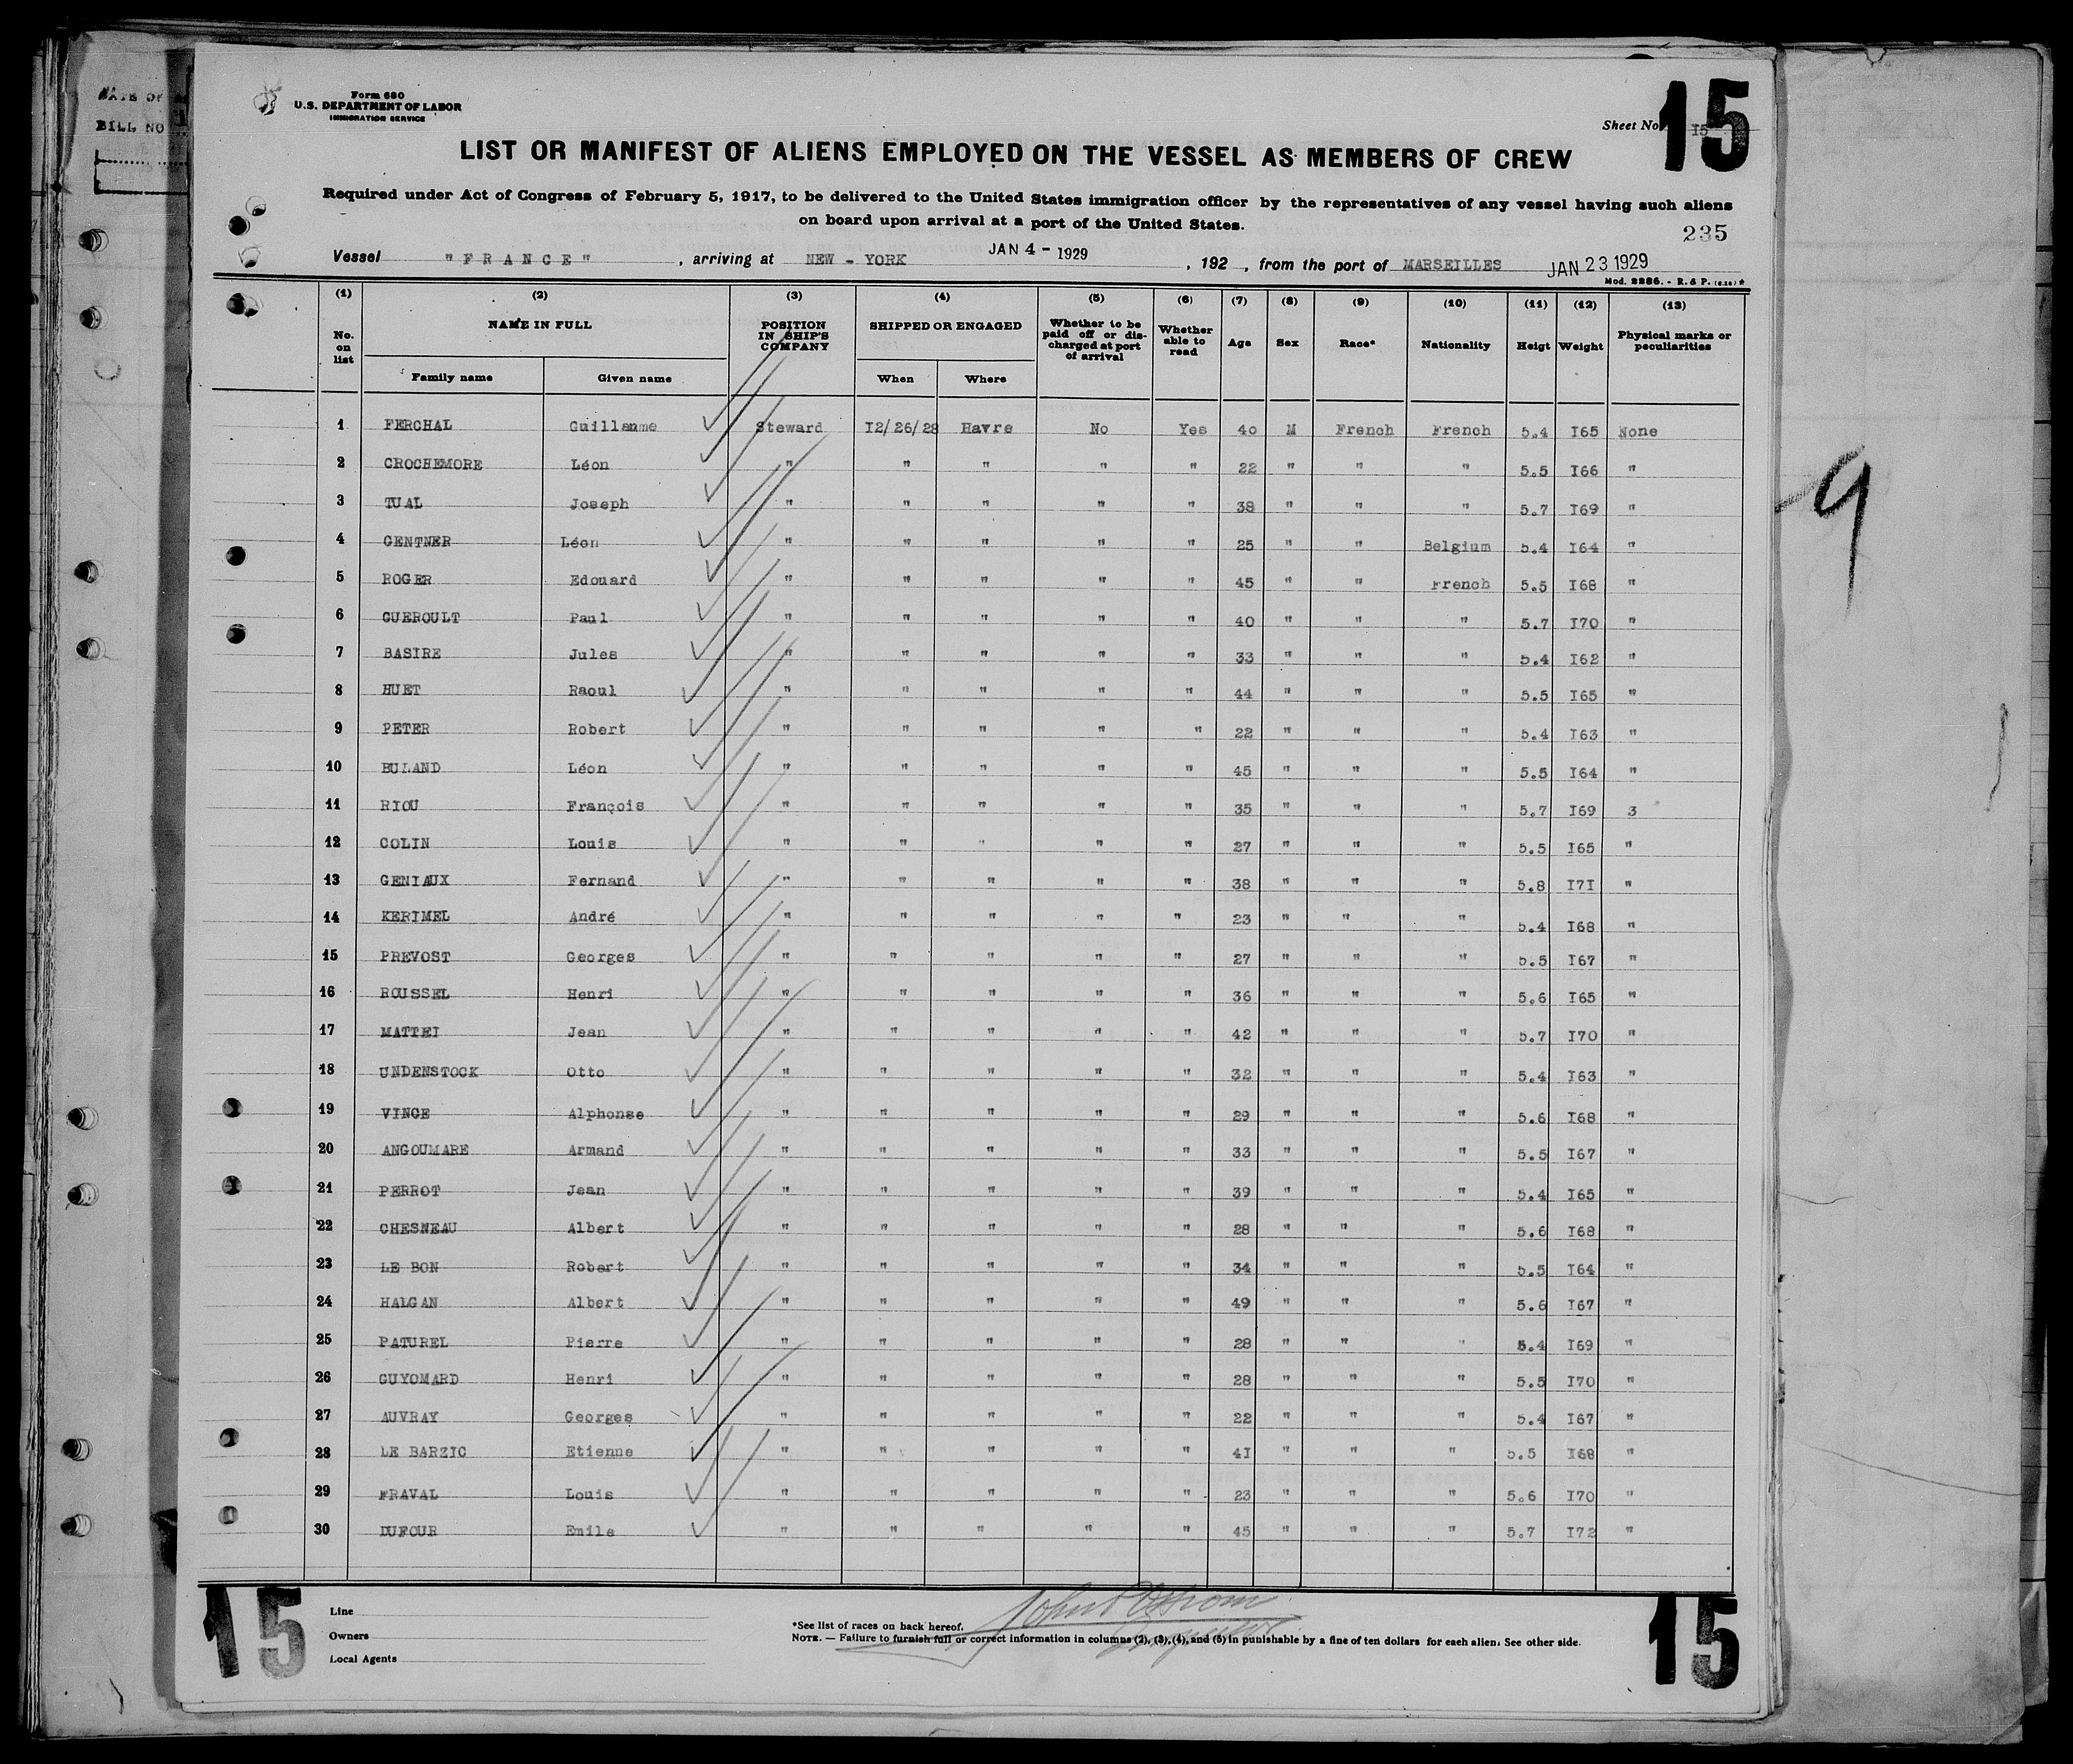 DATE OF
BILL NO
Form 680
U.S. DEPARTMENT OF LABOR
IMMIGRATION SERVICE
Sheet No. 15
15
LIST OR MANIFEST OF ALIENS EMPLOYED ON THE VESSEL AS MEMBERS OF CREW
Required under Act of Congress of February 5, 1917, to be delivered to the United States immigration officer by the representatives of any vessel having such aliens
on board upon arrival at a port of the United States.
235
Vessel "FRANCE", arriving at NEW - YORK JAN 4 - 1929, 192 , from the port of MARSEILLES JAN 23 1929
Mod. 2286. - R. & P. (6.28) *
(1) (2) (3) (4) (5) (6) (7) (8) (9) (10) (11) (12) (13)
No. on list NAME IN FULL POSITION IN SHIP'S COMPANY SHIPPED OR ENGAGED Whether to be paid off or discharged at port of arrival Whether able to read Age Sex Race* Nationality Heigt Weight Physical marks or peculiarities
Family name Given name When Where
1 FERCHAL Guillaume Steward I2/26/28 Havre No Yes 40 M French French 5.4 I65 None
2 CROCHEMORE Léon " " " " " 22 " " " 5.5 I66 "
3 TUAL Joseph " " " " " 38 " " " 5.7 I69 "
4 GENTNER Léon " " " " " 25 " " Belgium 5.4 I64 "
5 ROGER Edouard " " " " " 45 " " French 5.5 I68 "
6 GUEROULT Paul " " " " " 40 " " " 5.7 I70 "
7 BASIRE Jules " " " " " 33 " " " 5.4 I62 "
8 HUET Raoul " " " " " 44 " " " 5.5 I65 "
9 PETER Robert " " " " " 22 " " " 5.4 I63 "
10 BULAND Léon " " " " " 45 " " " 5.5 I64 "
11 RIOU François " " " " " 35 " " " 5.7 I69 3
12 COLIN Louis " " " " " 27 " " " 5.5 I65 "
13 GENIAUX Fernand " " " " " 38 " " " 5.8 I7I "
14 KERIMEL André " " " " " 23 " " " 5.4 I68 "
15 PREVOST Georges " " " " " 27 " " " 5.5 I67 "
16 ROUSSEL Henri " " " " " 36 " " " 5.6 I65 "
17 MATTEI Jean " " " " " 42 " " " 5.7 I70 "
18 UNDENSTOCK Otto " " " " " 32 " " " 5.4 I63 "
19 VINCE Alphonse " " " " " 29 " " " 5.6 I68 "
20 ANGOUMARE Armand " " " " " 33 " " " 5.5 I67 "
21 PERROT Jean " " " " " 39 " " " 5.4 I65 "
22 CHESNEAU Albert " " " " " 28 " " " 5.6 I68 "
23 LE BON Robert " " " " " 34 " " " 5.5 I64 "
24 HALGAN Albert " " " " " 49 " " " 5.6 I67 "
25 PATUREL Pierre " " " " " 28 " " " 5.4 I69 "
26 GUYOMARD Henri " " " " " 28 " " " 5.5 I70 "
27 AUVRAY Georges " " " " " 22 " " " 5.4 I67 "
28 LE BARZIC Etienne " " " " " 4I " " " 5.5 I68 "
29 FRAVAL Louis " " " " " 23 " " " 5.6 I70 "
30 DUFOUR Emile " " " " " 45 " " " 5.7 I72 "
9
15
15
Line
Owners
Local Agents
*See list of races on back hereof.
NOTE. — Failure to furnish full or correct information in columns (2), (3), (4), and (5) in punishable by a fine of ten dollars for each alien. See other side.